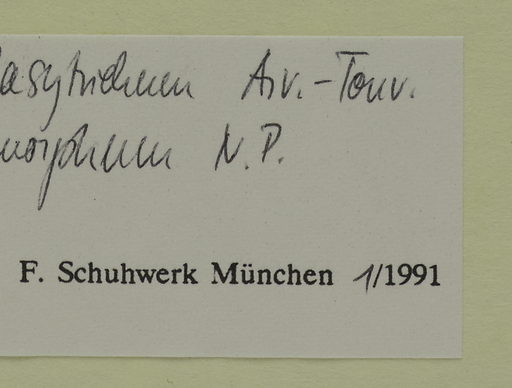 dasytrichum Arv.-Touv.
morphum N.P.
F. Schuhwerk München 1/1991